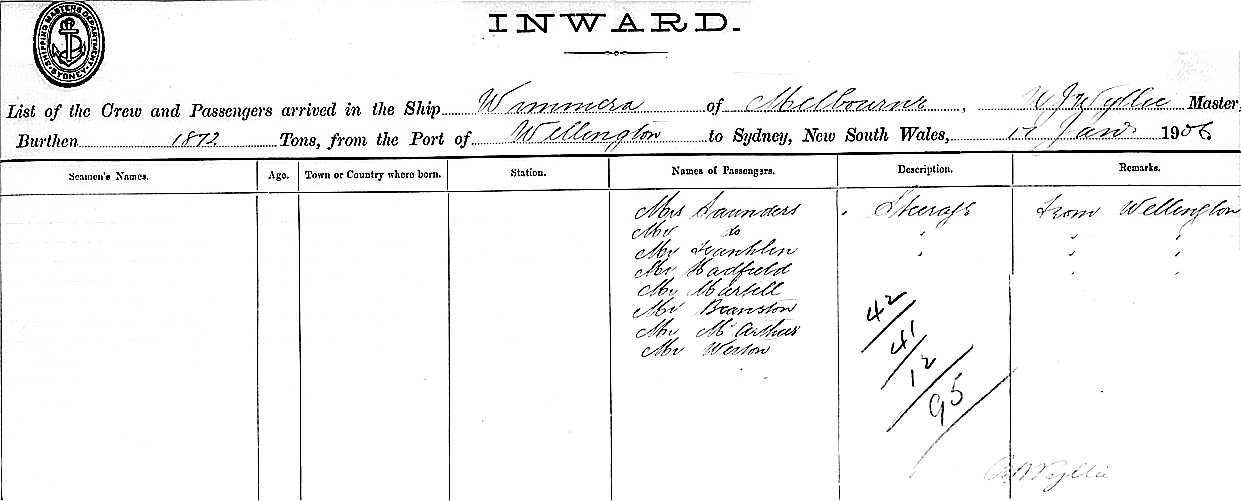 SHIPPING MASTER'S DEPARTMENT. SYDNEY.
INWARD.
List of the Crew and Passengers arrived in the Ship Wimmera of Melbourne, W J Wyllie Master,
Burthen 1872 Tons, from the Port of Wellington to Sydney, New South Wales, 17 Jany 1906
Seamen's Names. Age. Town or Country where born. Station. Names of Passengers. Description. Remarks.
Mrs Saunders Steerage From Wellington
Mr do " " "
Mr Franklin " " "
Mr Hadfield " "
Mr Martell
Mr Branston
Mr McArthur
Mr Weston
42
41
12
95
Wyllie